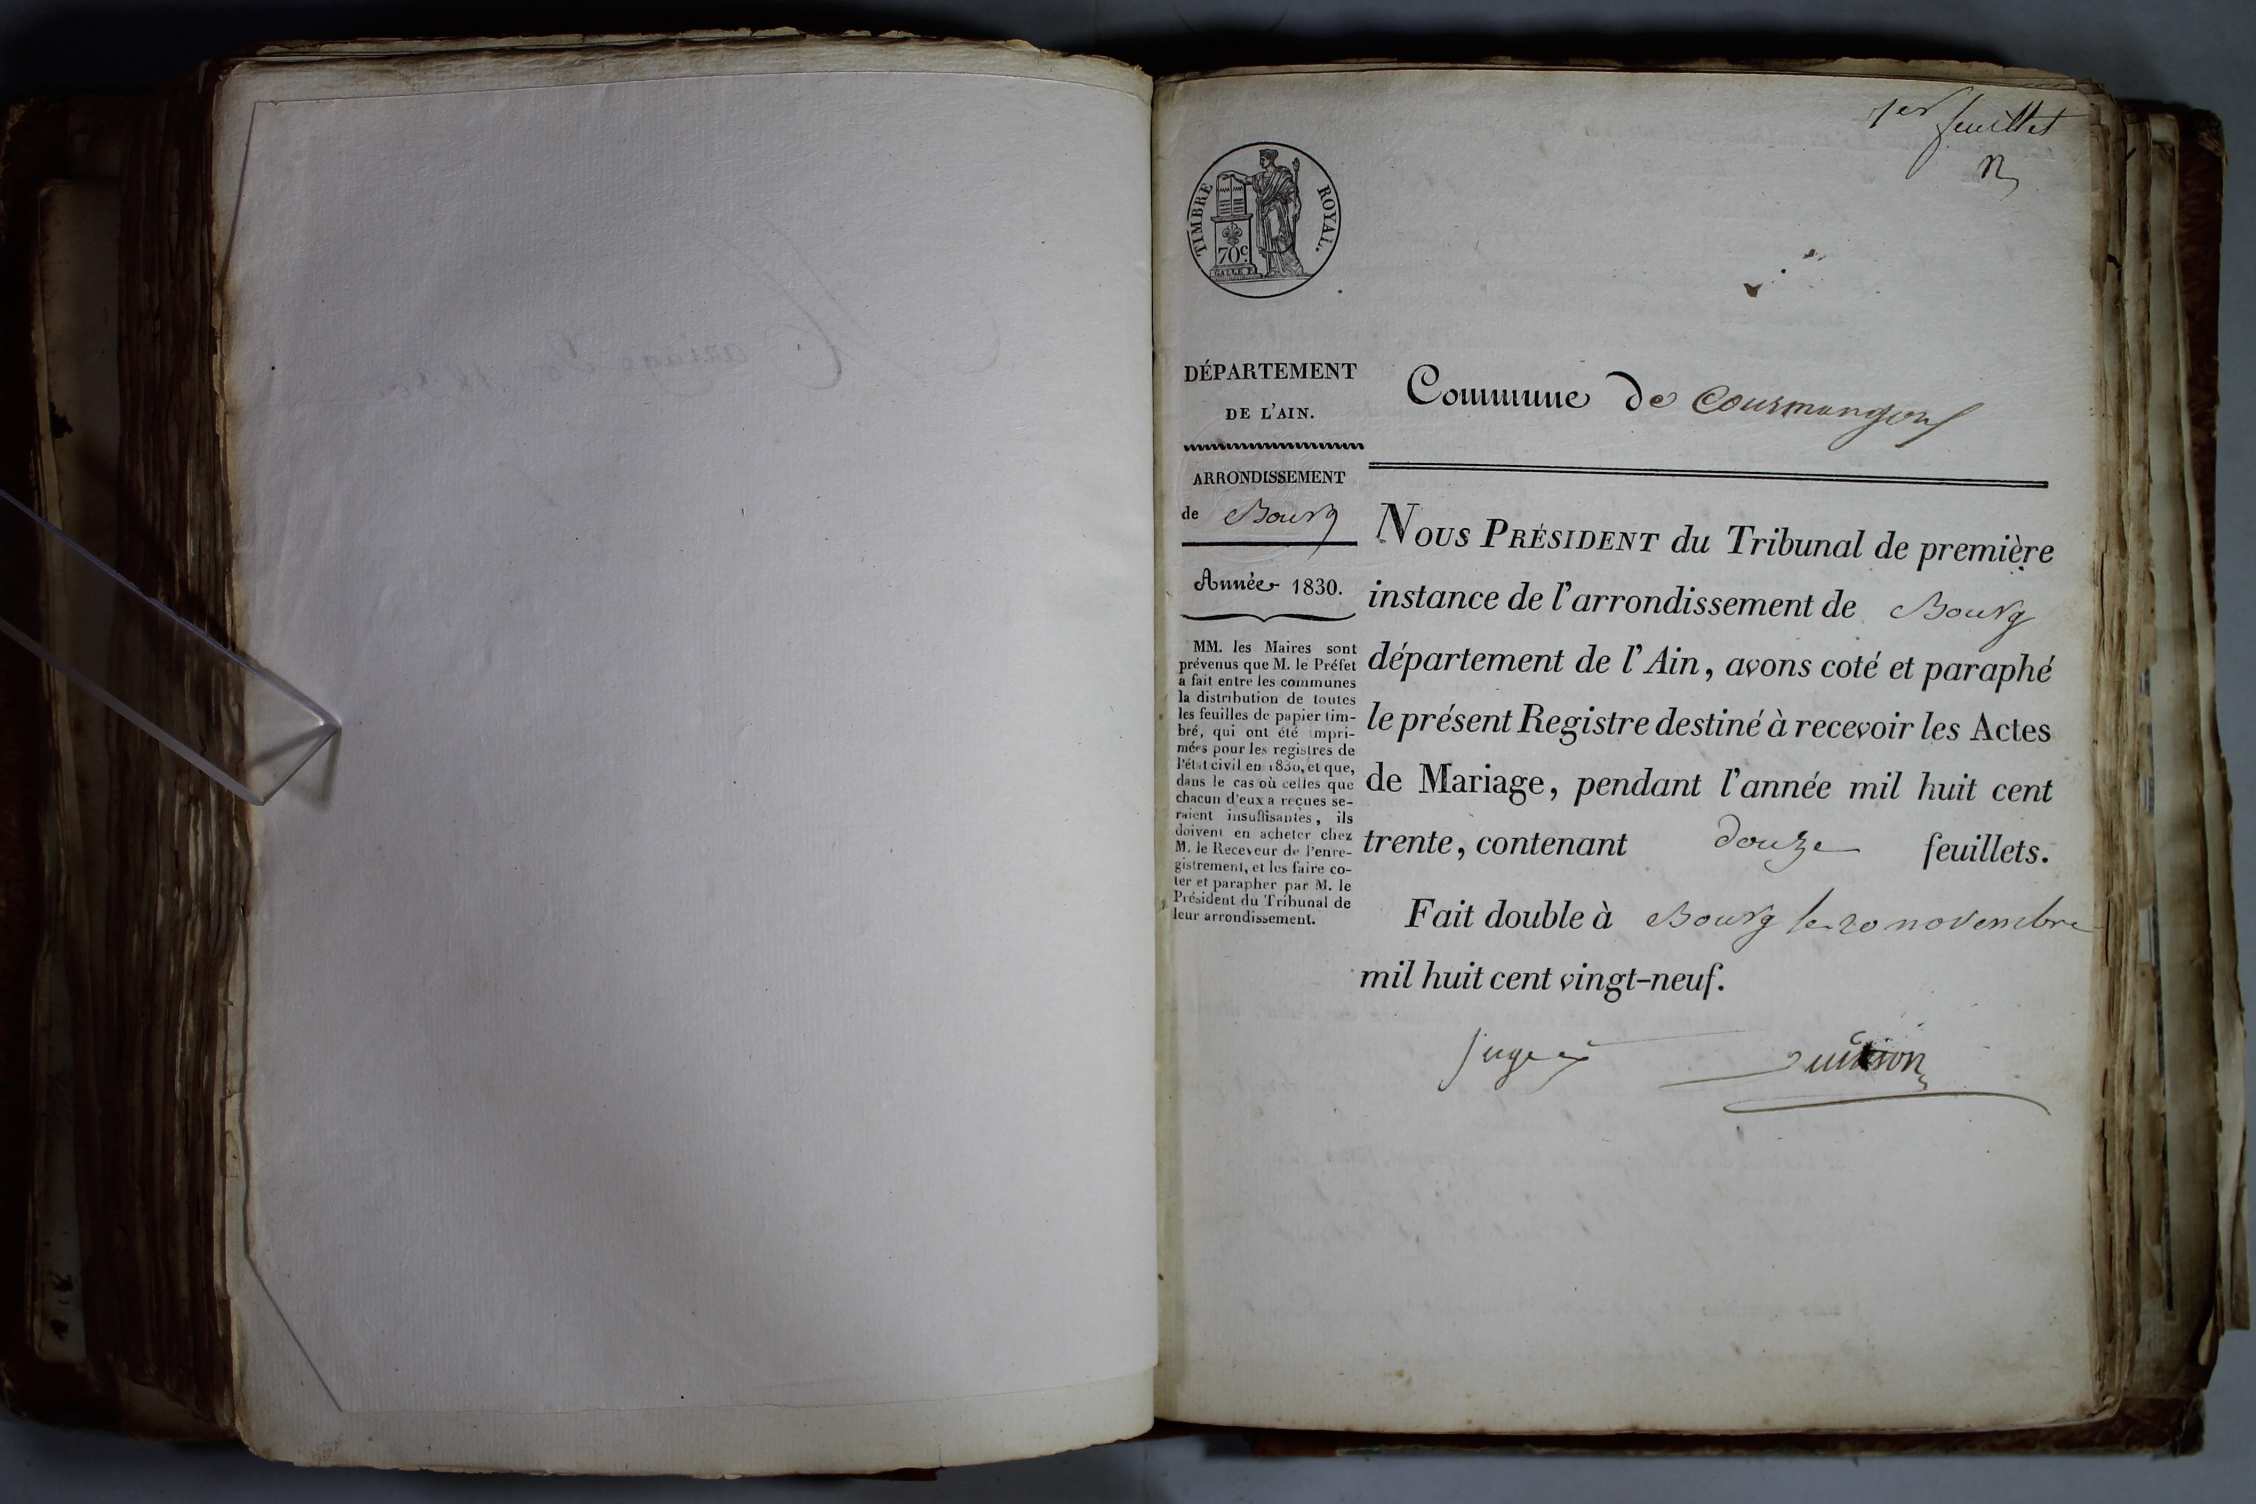 1er feuillet
TIMBRE ROYAL.
70c.
DÉPARTEMENT
DE L'AIN.
ARRONDISSEMENT
de Bourg
Année 1830.
MM. les Maires sont
prévenus que M. le Préfet
a fait entre les communes
la distribution de toutes
les feuilles de papier tim-
bré, qui ont été impri-
mées pour les registres de
l'état civil en 1830, et que,
dans le cas où celles que
chacun d'eux a reçues se-
raient insuffisantes, ils
doivent en acheter chez
M. le Receveur de l'enre-
gistrement, et les faire co-
ter et parapher par M. le
Président du Tribunal de
leur arrondissement.
Commune de Courmangoux
NOUS PRÉSIDENT du Tribunal de première
instance de l'arrondissement de Bourg
département de l'Ain, avons coté et paraphé
le présent Registre destiné à recevoir les Actes
de Mariage, pendant l'année mil huit cent
trente, contenant douze feuillets.
Fait double à Bourg le 20 novembre
mil huit cent vingt-neuf.